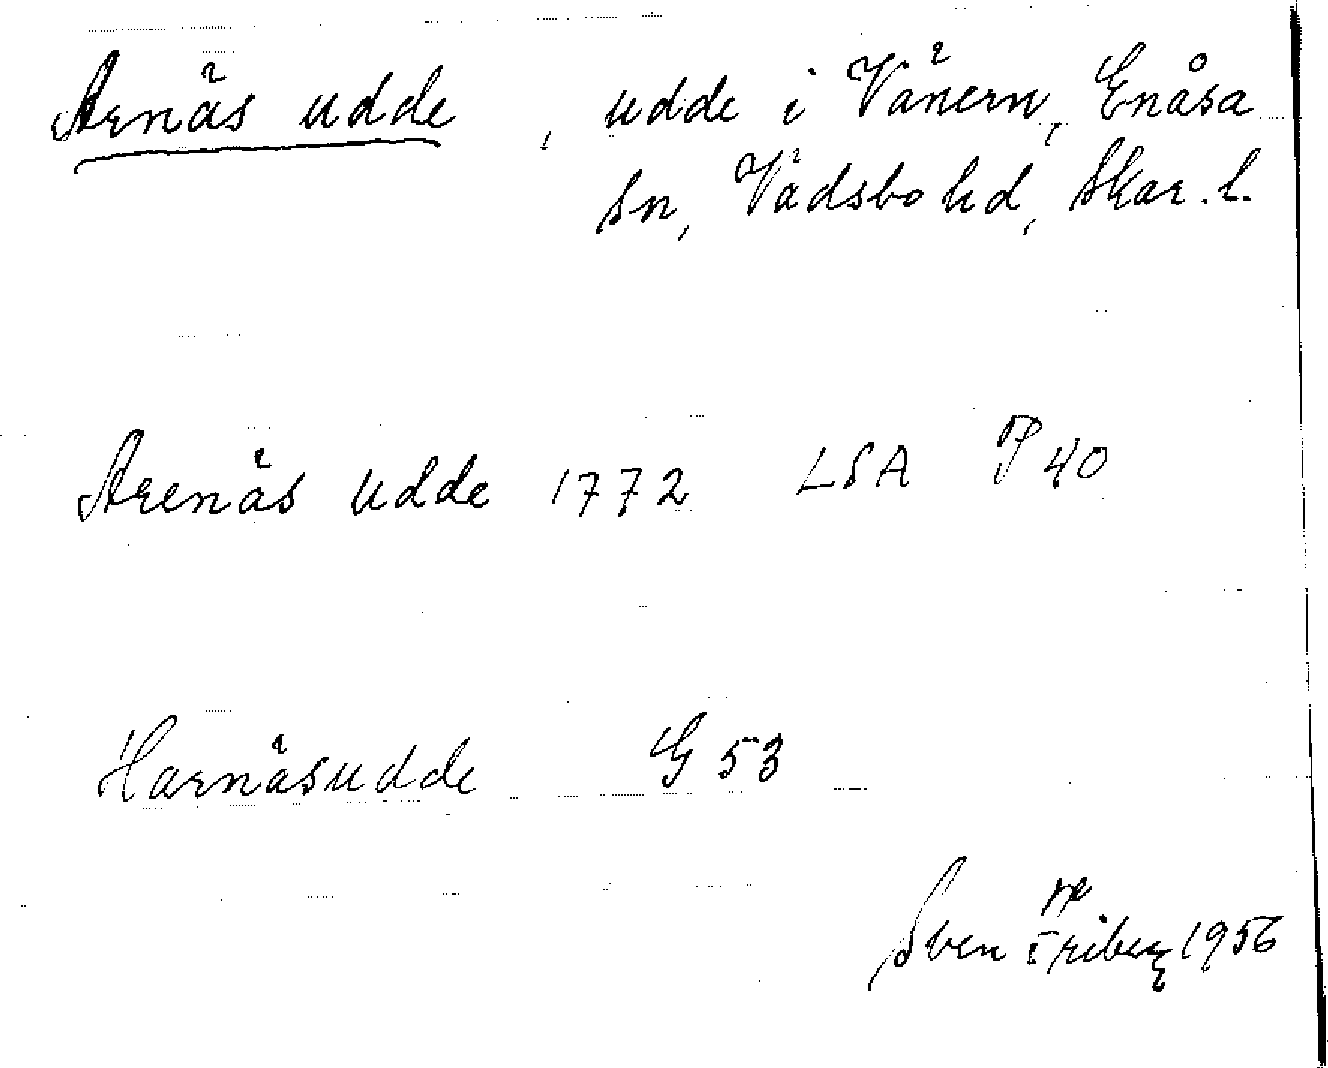 Arnäs udde, udde i Vänern, Enåsa
sn, Vadsbo hd, Skar. l.
Arenäs udde 1772 LSA P 40
Harnäsudde G 53
Sven Friberg 1956